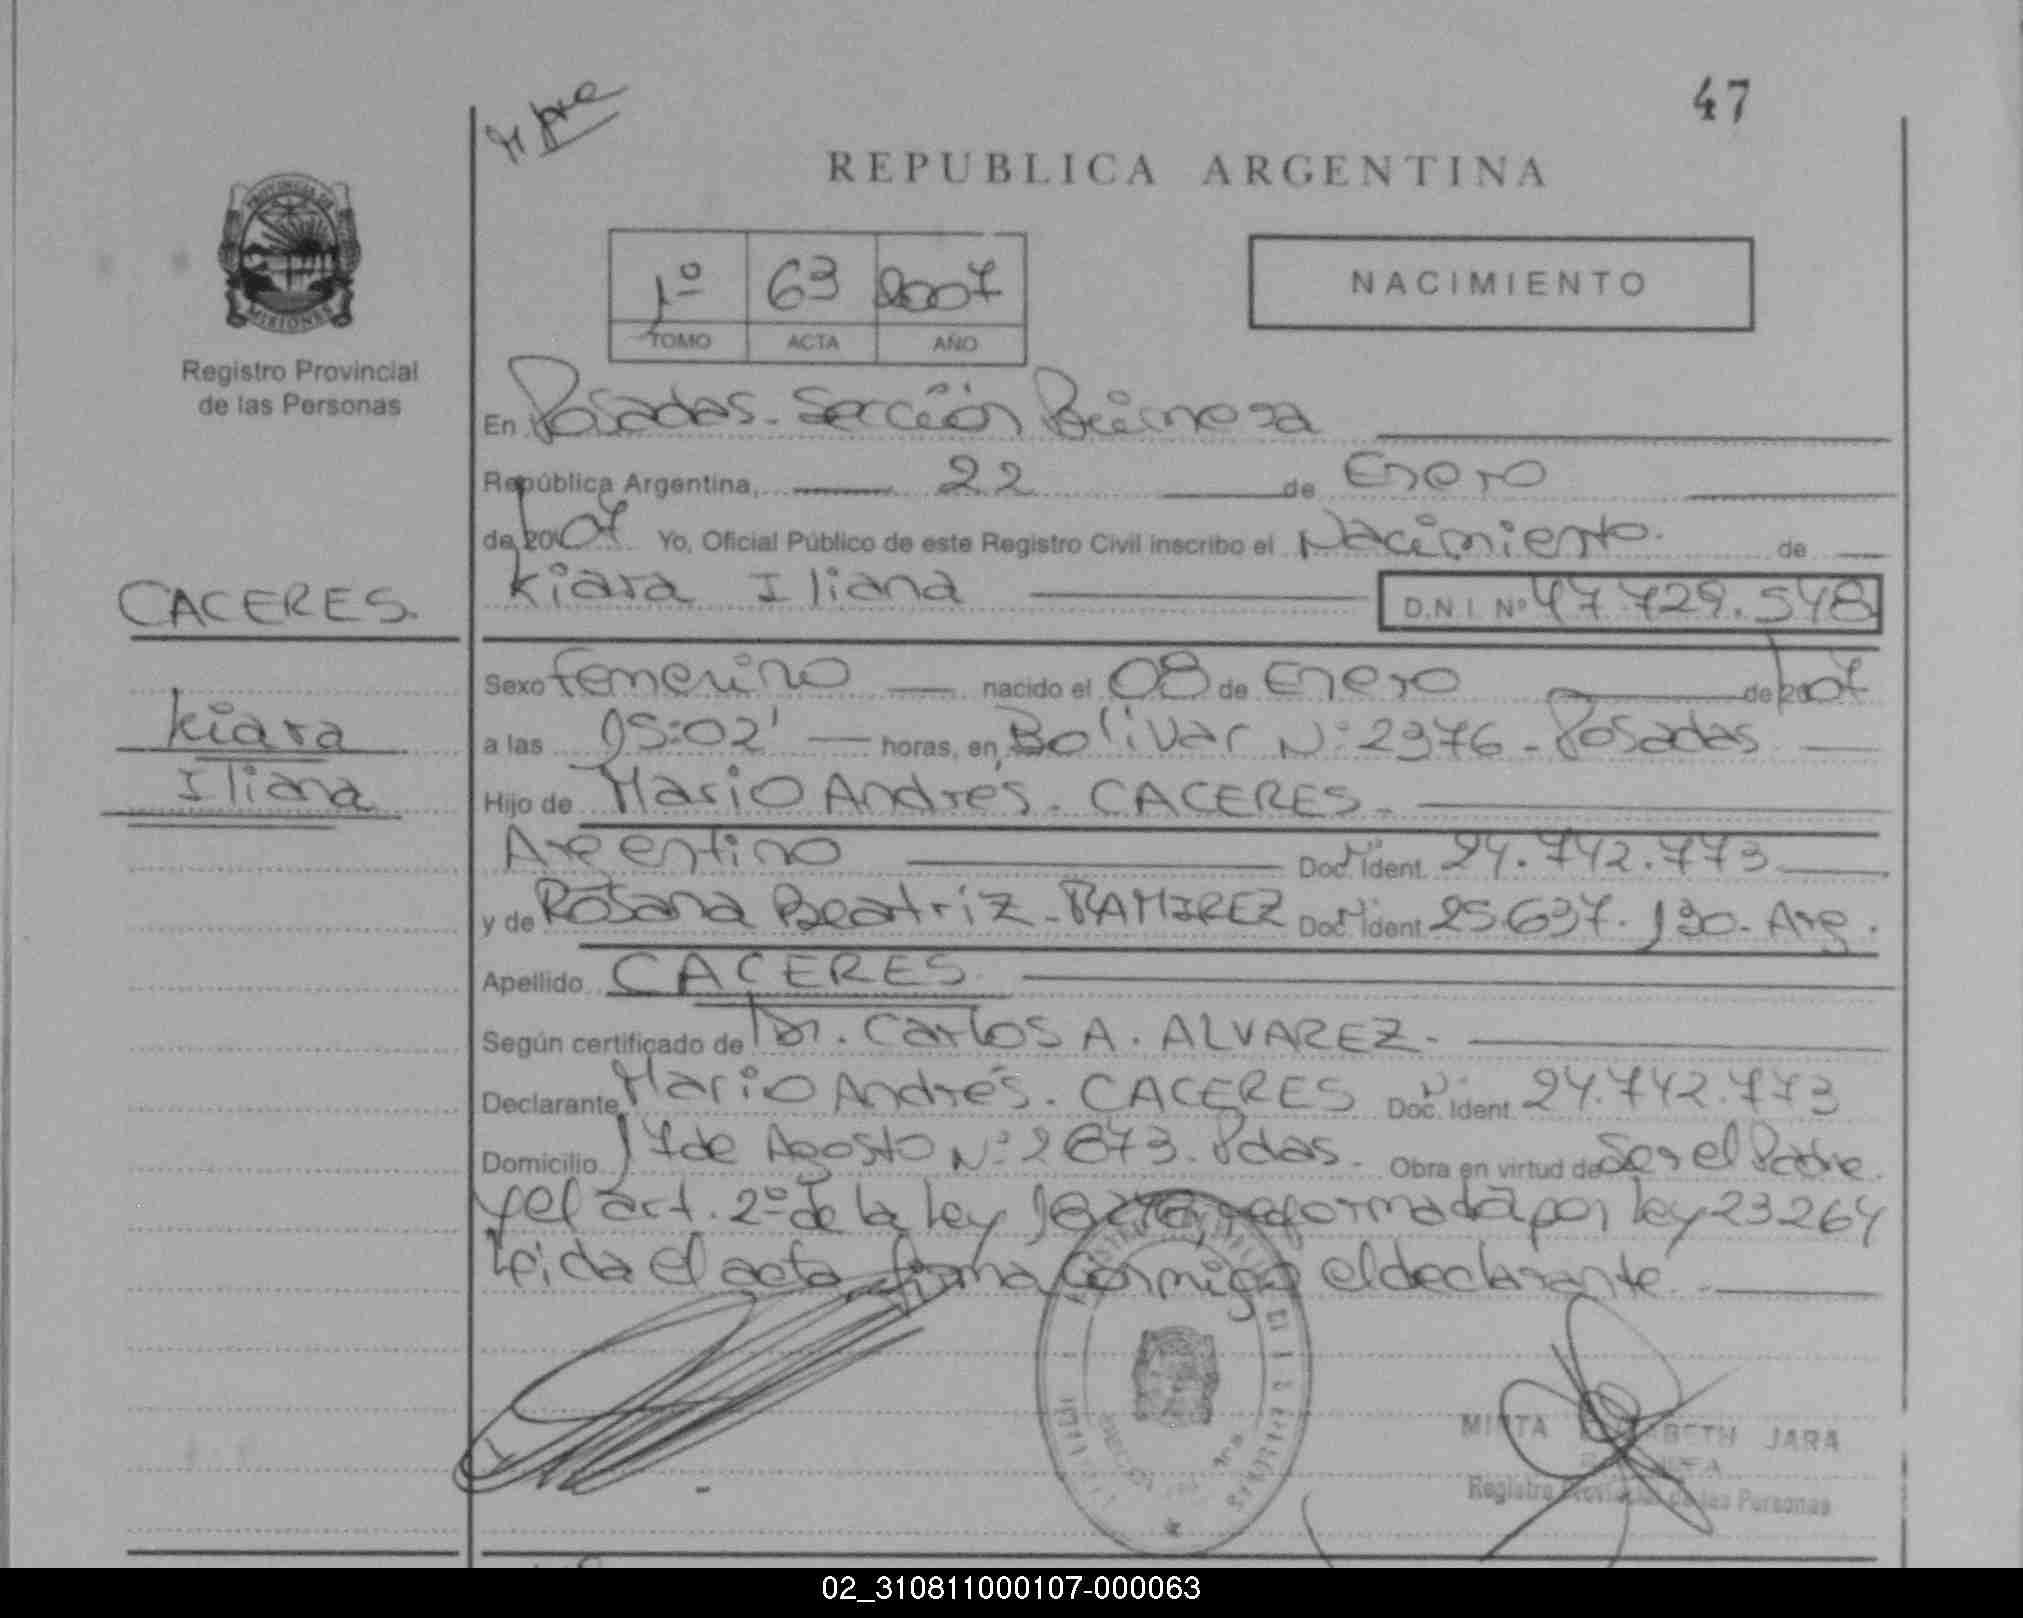 47
REPUBLICA ARGENTINA
PROVINCIA DE
MISIONES
Registro Provincial
de las Personas
1º 63 2007
TOMO ACTA AÑO
NACIMIENTO
En Posadas - Sección Primera
República Argentina, 22 de Enero
de 2007 Yo, Oficial Público de este Registro Civil inscribo el Nacimiento de
CACERES.
Kiara Iliana D.N.I. Nº 47.729.548
Sexo femenino nacido el 08 de Enero de 2007
Kiara
a las 05:02' horas, en Bolivar Nº 2376 - Posadas
Iliana
Hijo de Mario Andrés. CACERES.
Argentino Doc. Ident. 24.742.773
y de Rosana Beatriz - RAMIREZ Doc. Ident. 25.637.130. Arg.
Apellido CACERES
Según certificado de Dr. Carlos A. ALVAREZ.
Declarante Mario Andrés. CACERES Doc. Ident. 24.742.773
Domicilio 17 de Agosto Nº 2673. Pdas. Obra en virtud de Ser el Padre.
y el art. 2º de la Ley reformada por Ley 23264
Leida el acta firma conmigo el declarante.
JARA
Registro Provincial de las Personas
02_310811000107-000063